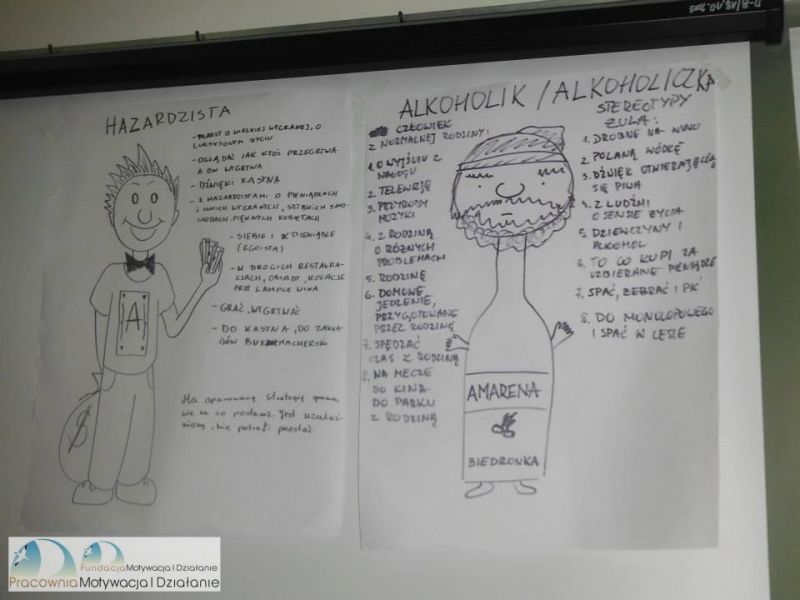 HAZARDZISTA
- MARZY O WIELKIEJ WYGRANEJ, O
LUKSUSOWYM ŻYCIU
- OGLĄDAĆ JAK KTOŚ PRZEGRYWA
A ON WYGRYWA
- DŹWIĘKI KASYNA
- Z HAZARDZISTAMI O PIENIĄDZACH
WYGRANYCH, SZYBKICH SAMO
CHODACH, PIĘKNYCH KOBIETACH
- SIEBIE I PIENIĄDZE
(EGOISTA)
- W DROGICH RESTAURA-
CJACH, OBIADY, KOLACJE
PRZY LAMPCE WINA
- GRAĆ, WYGRYWAĆ
- DO KASYNA, DO ZAKŁA-
DÓW BUKMACHERSKI
Ma opanowaną strategię
Jest uzależ-
niony, nie potrafi przestać.
A
$
ALKOHOLIK / ALKOHOLICZKA
CZŁOWIEK
Z NORMALNEJ RODZINY:
1. O WYJŚCIU Z
NAŁOGU
2. TELEWIZJĘ
3. PRZYRODY
MUZYKI
4. Z RODZINĄ
O RÓŻNYCH
PROBLEMACH
5. RODZINĘ
6. DOMOWE
JEDZENIE,
PRZYGOTOWANE
PRZEZ RODZINĘ
7. SPĘDZAĆ
CZAS Z RODZINĄ
8. NA MECZE
DO KINA
DO PARKU
Z RODZINĄ
STEREOTYPY
ŻULA:
1. DROBNE NA WINO
2. POLANĄ WÓDKĘ
3. DŹWIĘK OTWIERAJĄCEGO
SIĘ PIWA
4. Z LUDŹMI
O SENSIE ŻYCIA
5. DZIEWCZYNY I
ALKOHOL
6. TO CO KUPI ZA
UZBIERANE PIENIĄDZE
7. SPAĆ, ŻEBRAĆ I PIĆ
8. DO MONOPOLOWEGO
I SPAĆ W LESIE
AMARENA
BIEDRONKA
Fundacja Motywacja I Działanie
Pracownia Motywacja I Działanie